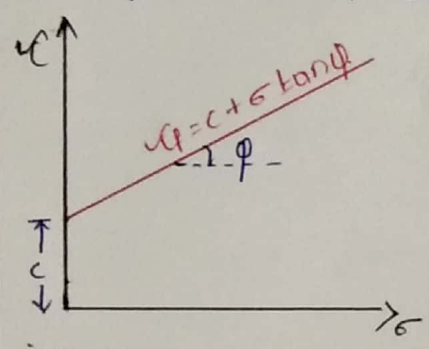 τ
τf = c + σ tanφ
φ
c
σ